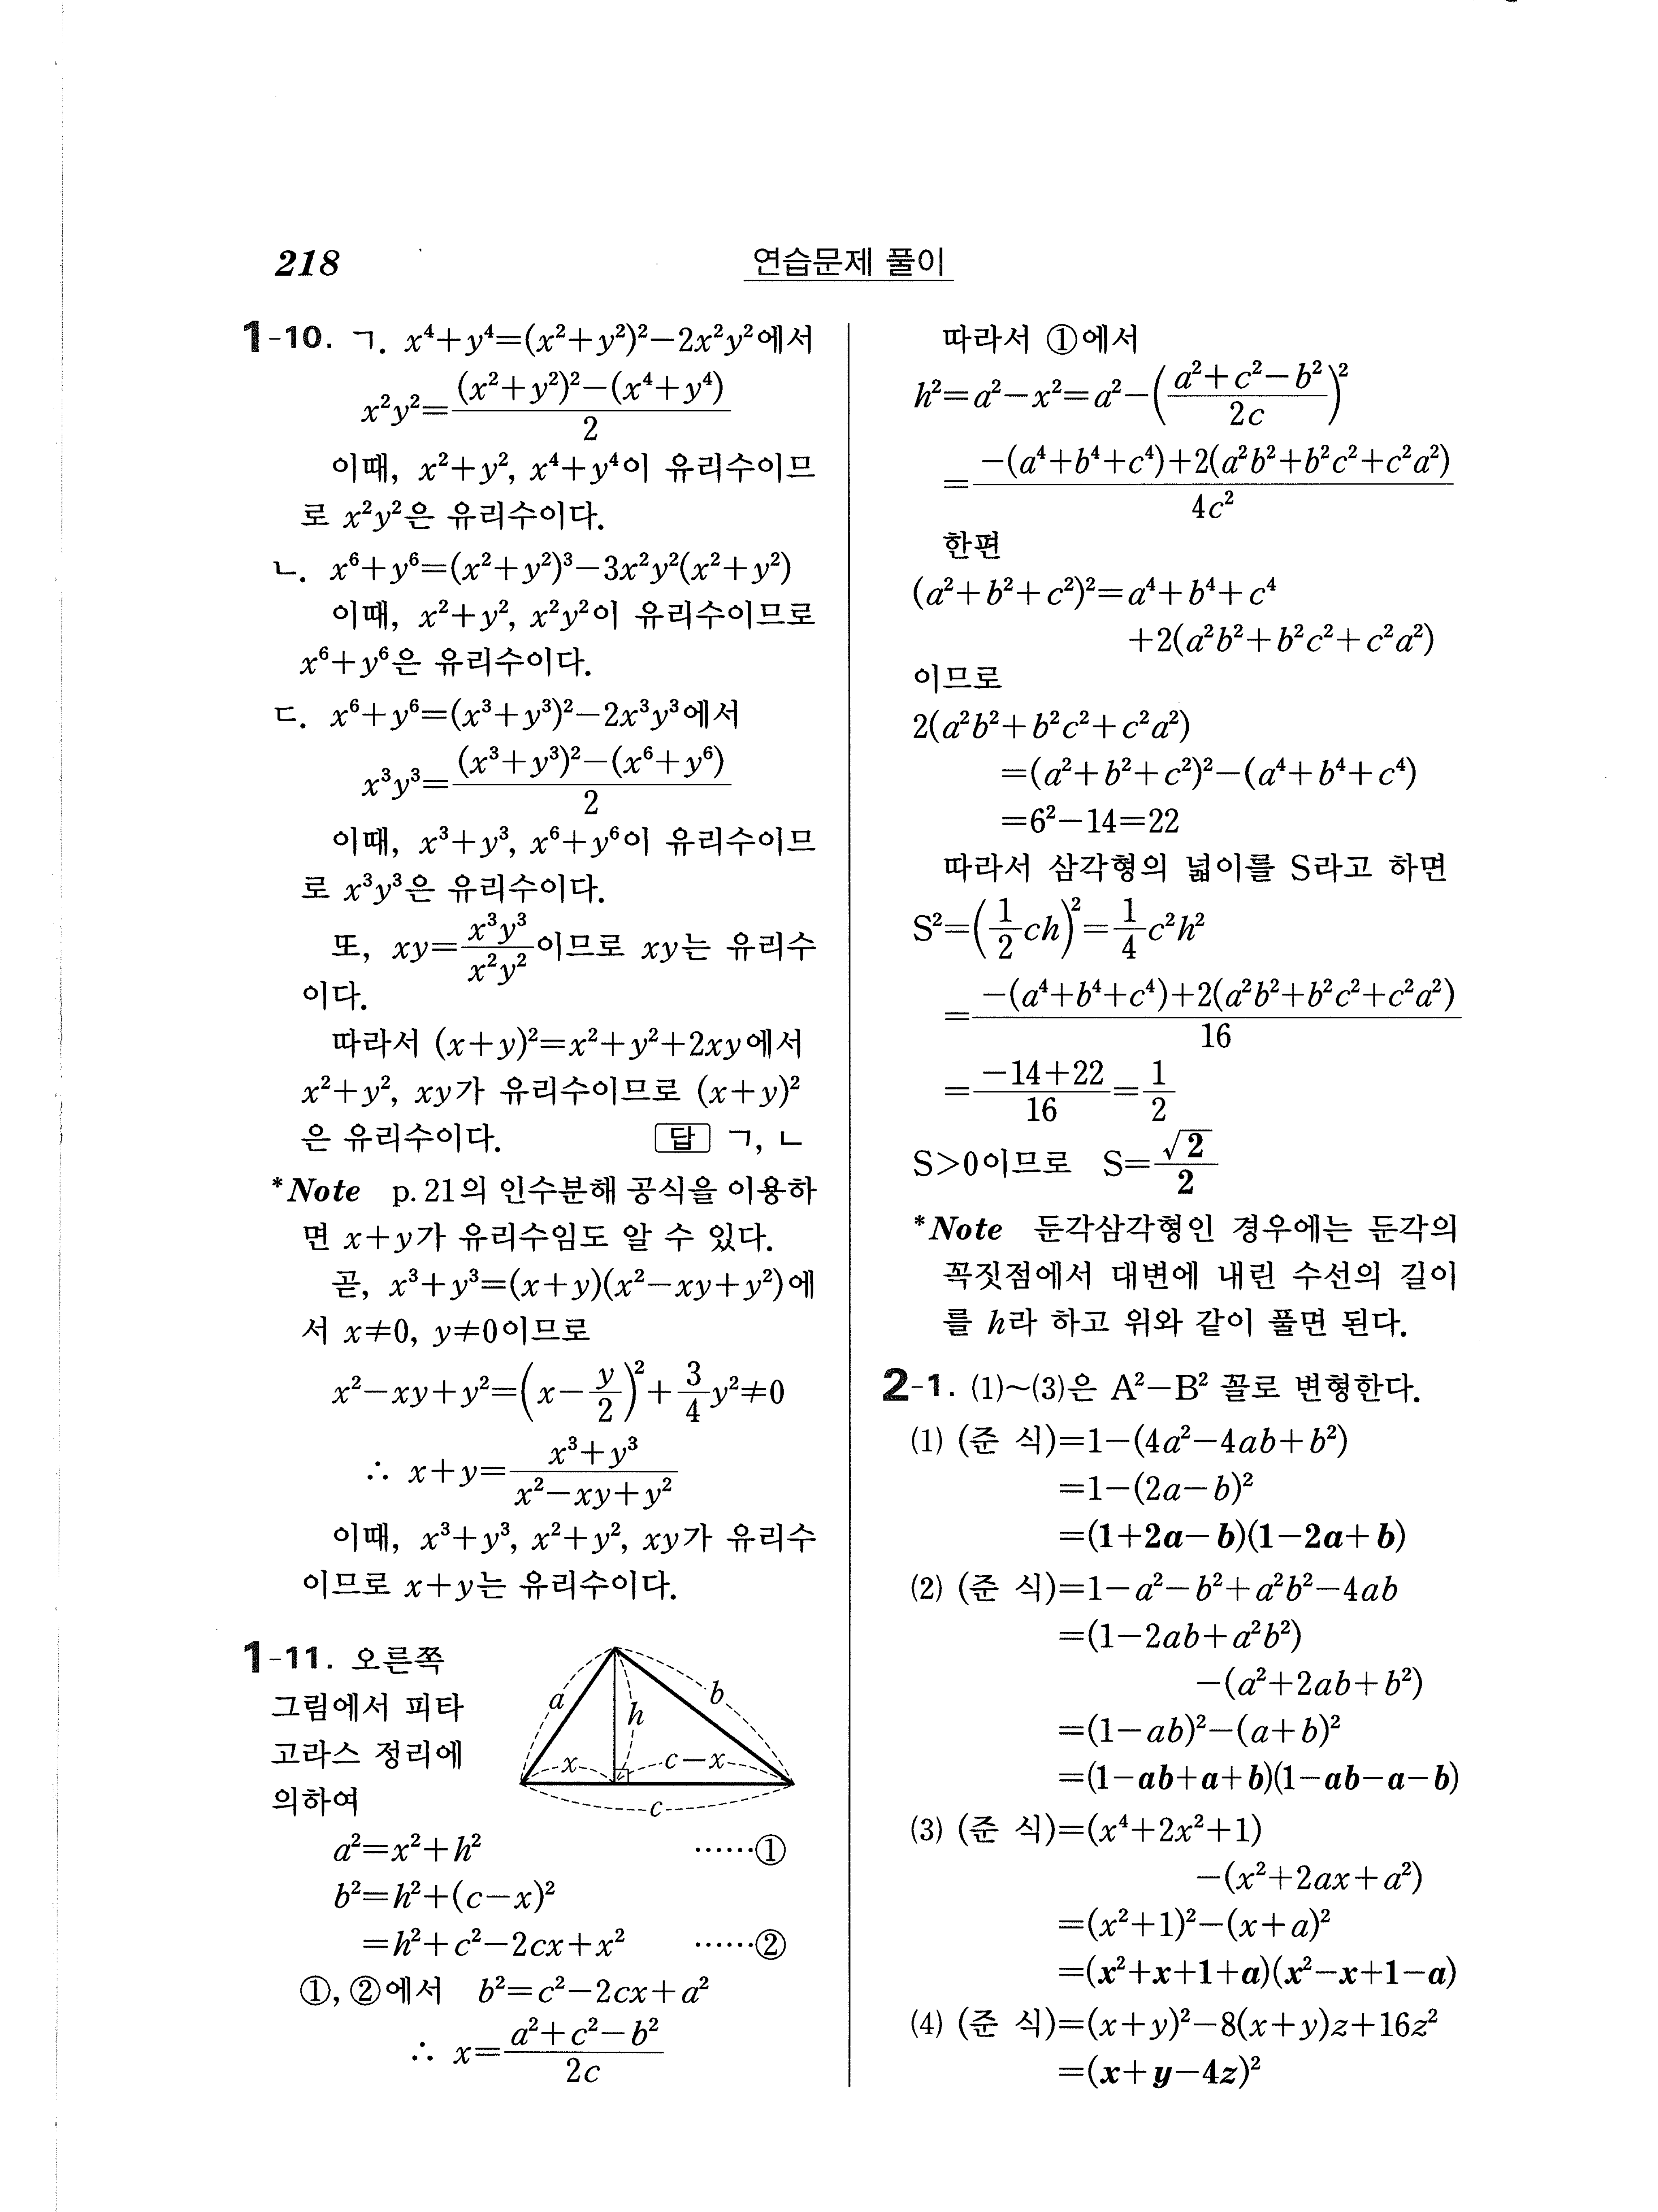 218
연습문제 풀이
1-10. ㄱ. x⁴+y⁴=(x²+y²)²-2x²y²에서
x²y²=\frac{(x²+y²)²-(x⁴+y⁴)}{2}
이때, x²+y², x⁴+y⁴이 유리수이므
로 x²y²은 유리수이다.
ㄴ. x⁶+y⁶=(x²+y²)³-3x²y²(x²+y²)
이때, x²+y², x²y²이 유리수이므로
x⁶+y⁶은 유리수이다.
ㄷ. x⁶+y⁶=(x³+y³)²-2x³y³에서
x³y³=\frac{(x³+y³)²-(x⁶+y⁶)}{2}
이때, x³+y³, x⁶+y⁶이 유리수이므
로 x³y³은 유리수이다.
또, xy=\frac{x³y³}{x²y²}이므로 xy는 유리수
이다.
따라서 (x+y)²=x²+y²+2xy에서
x²+y², xy가 유리수이므로 (x+y)²
은 유리수이다. 답 ㄱ, ㄴ
*Note p. 21의 인수분해 공식을 이용하
면 x+y가 유리수임도 알 수 있다.
곧, x³+y³=(x+y)(x²-xy+y²)에
서 x≠0, y≠0이므로
x²-xy+y²=(x-\frac{y}{2})²+\frac{3}{4}y²≠0
∴ x+y=\frac{x³+y³}{x²-xy+y²}
이때, x³+y³, x²+y², xy가 유리수
이므로 x+y는 유리수이다.
1-11. 오른쪽
그림에서 피타
고라스 정리에
의하여
a
b
h
x
c-x
c
a²=x²+h² ……①
b²=h²+(c-x)²
=h²+c²-2cx+x² ……②
①, ②에서 b²=c²-2cx+a²
∴ x=\frac{a²+c²-b²}{2c}
따라서 ①에서
h²=a²-x²=a²-(\frac{a²+c²-b²}{2c})²
=\frac{-(a⁴+b⁴+c⁴)+2(a²b²+b²c²+c²a²)}{4c²}
한편
(a²+b²+c²)²=a⁴+b⁴+c⁴
+2(a²b²+b²c²+c²a²)
이므로
2(a²b²+b²c²+c²a²)
=(a²+b²+c²)²-(a⁴+b⁴+c⁴)
=6²-14=22
따라서 삼각형의 넓이를 S라고 하면
S²=(\frac{1}{2}ch)²=\frac{1}{4}c²h²
=\frac{-(a⁴+b⁴+c⁴)+2(a²b²+b²c²+c²a²)}{16}
=\frac{-14+22}{16}=\frac{1}{2}
S>0이므로 S=\frac{√2}{2}
*Note 둔각삼각형인 경우에는 둔각의
꼭짓점에서 대변에 내린 수선의 길이
를 h라 하고 위와 같이 풀면 된다.
2-1. (1)~(3)은 A²-B² 꼴로 변형한다.
(1) (준 식)=1-(4a²-4ab+b²)
=1-(2a-b)²
=(1+2a-b)(1-2a+b)
(2) (준 식)=1-a²-b²+a²b²-4ab
=(1-2ab+a²b²)
-(a²+2ab+b²)
=(1-ab)²-(a+b)²
=(1-ab+a+b)(1-ab-a-b)
(3) (준 식)=(x⁴+2x²+1)
-(x²+2ax+a²)
=(x²+1)²-(x+a)²
=(x²+x+1+a)(x²-x+1-a)
(4) (준 식)=(x+y)²-8(x+y)z+16z²
=(x+y-4z)²